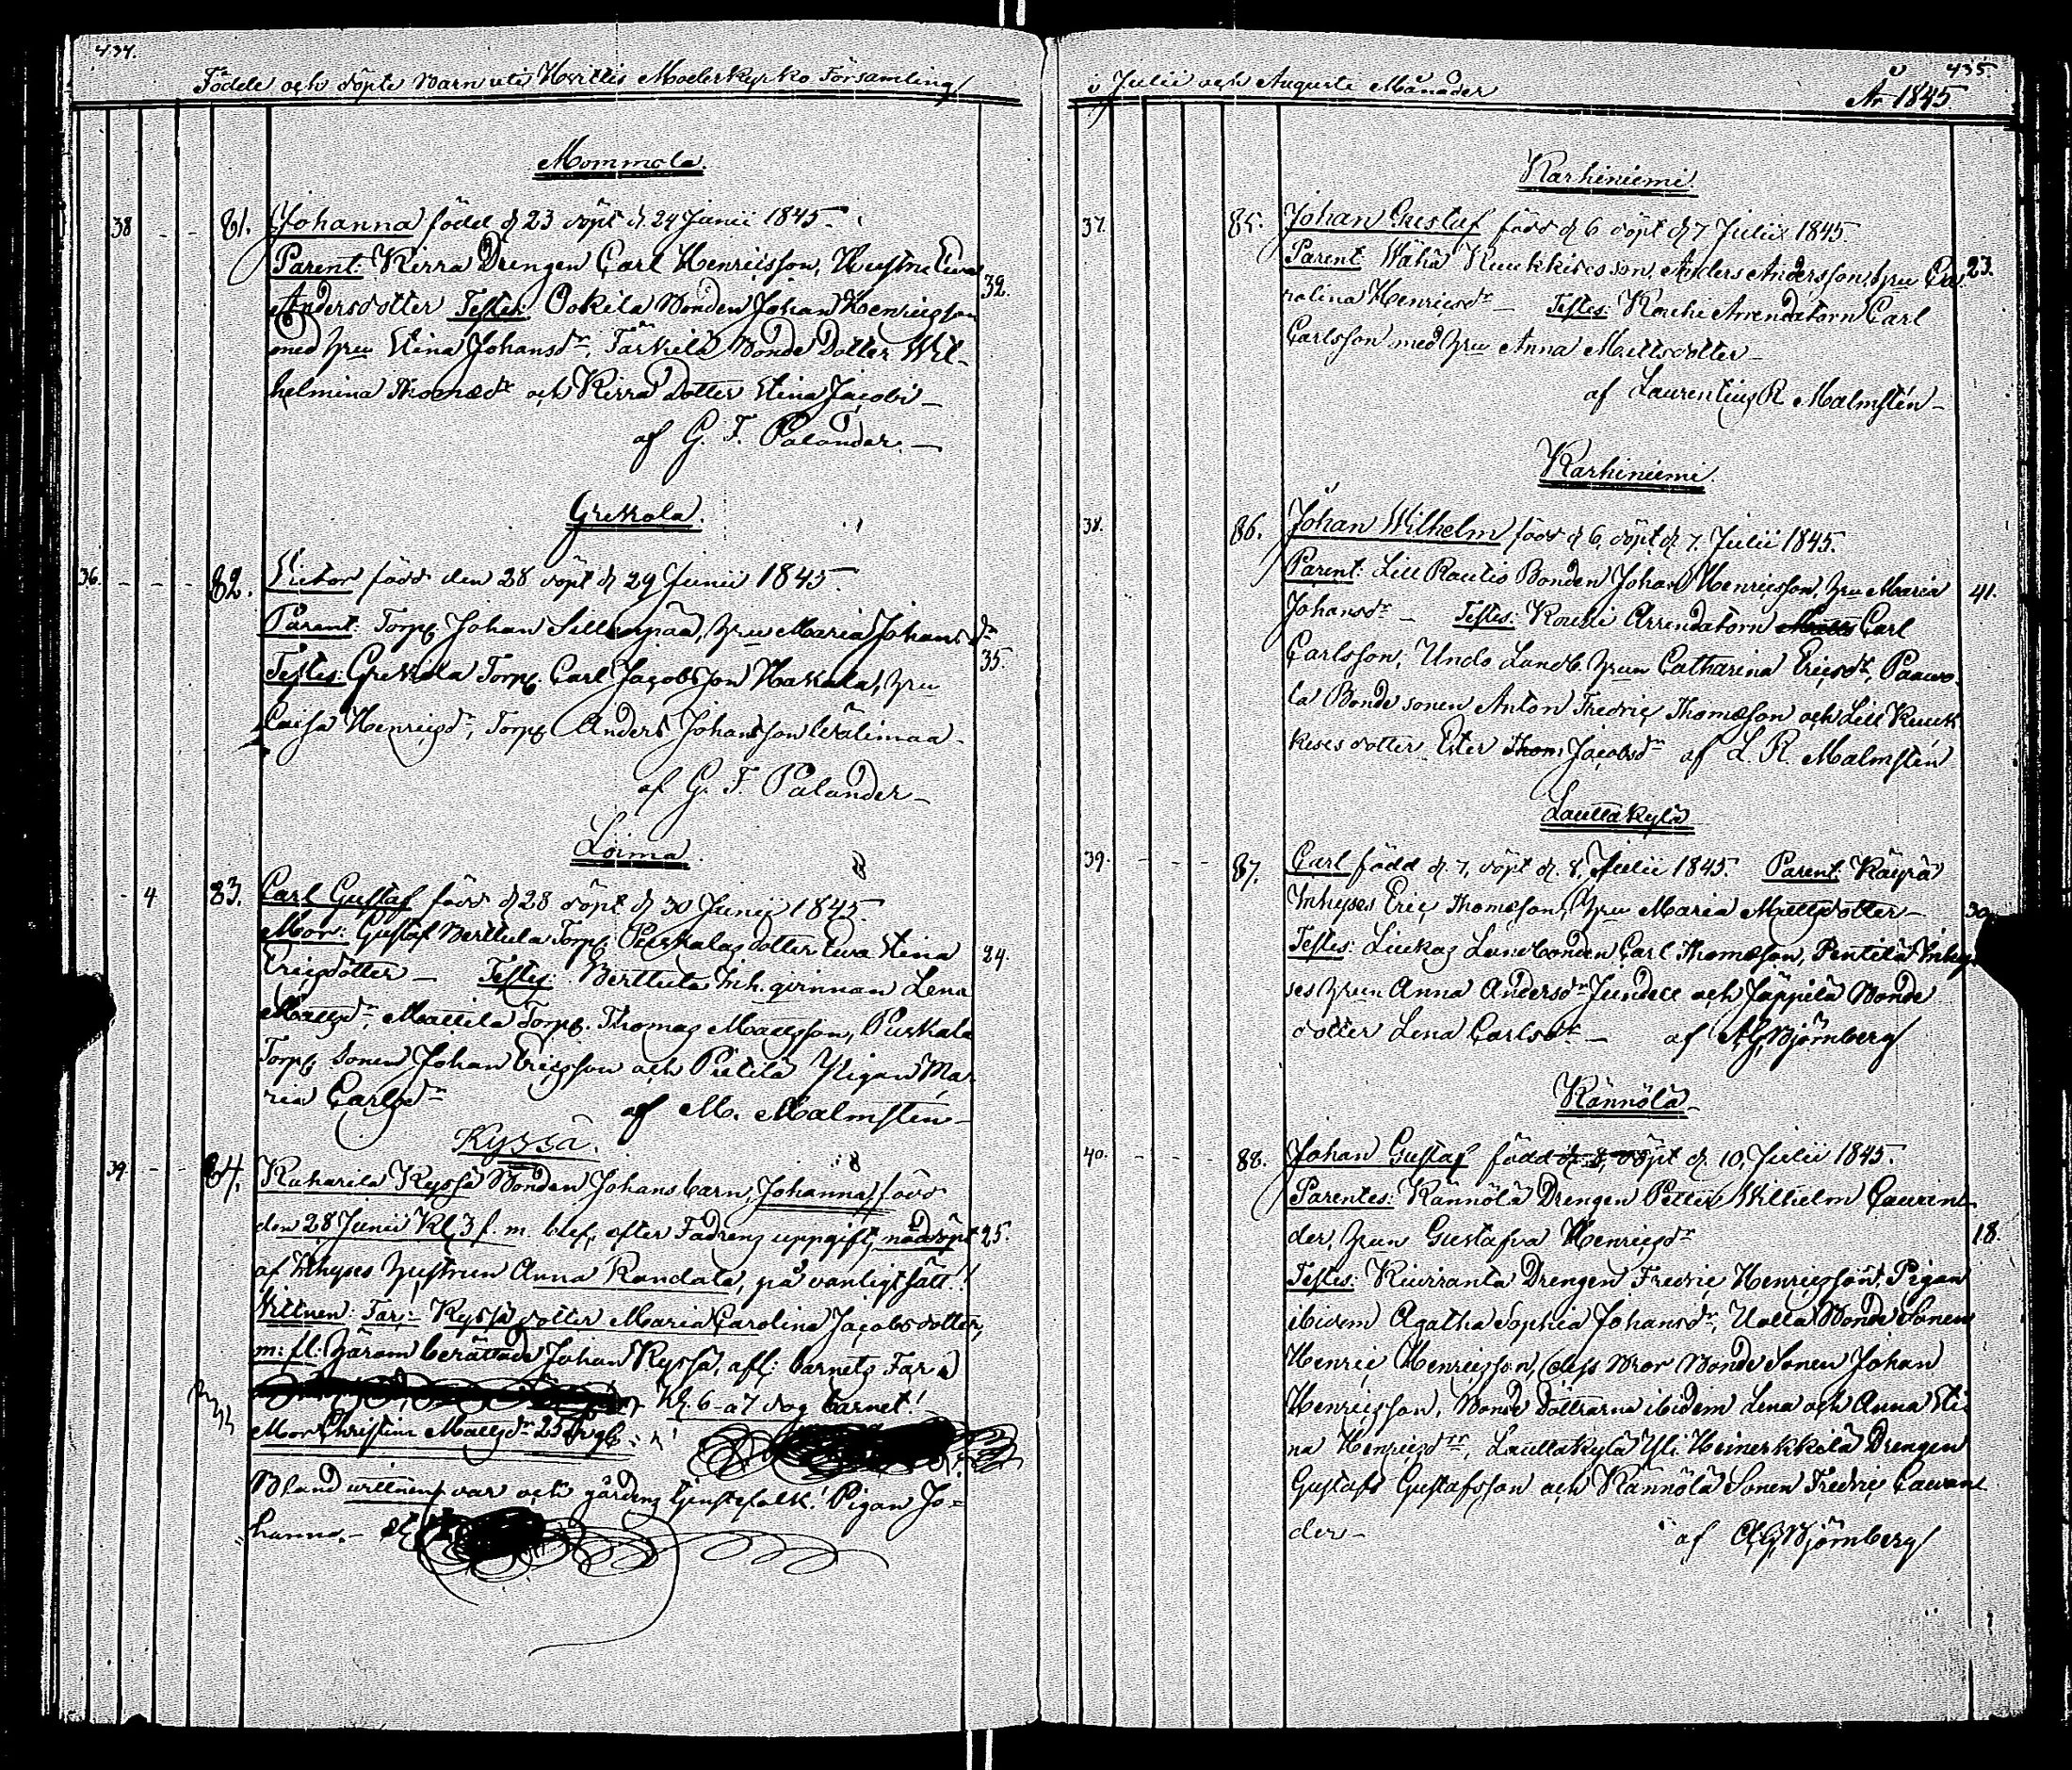 434.
Födde och döpte Barn uti Hvittis Moderkyrko Församling
Mommola.
38 - - 81. Johanna född d 23 döpt d. 24 Junii 1845.
Parent: Kirra Drengen Carl Henricsson, Hustru Eva
Andersdotter Testes: Ookila Bonden Johan Henricsson 32.
med hru Stina Johansdr, Tärkilä Bonde Dotter Wil-
helmina Thomædr och Kirra Dotter Stina Jacobi -
af G. F. Palander. -
Grekola.
36. - - - 82. Victor född den 28 döpt d 29 Junii 1845.
Parent: Torp. Johan Sillanpää, hru Maria Johansdr
Testes: Grekola Torp. Carl Jacobsson Hakala, hru 35.
Caisa Henricsdr, Torp. Anders Johansson Välimaa -
af G. F. Palander -
Loima.
- 4 83. Carl Gustaf född d 28 döpt d 30 Junii 1845.
Mor: Gustaf Berttula Torp. Puskalas dotter Eva Stina
Ericsdotter - Testes: Berttula Inh. qvinnan Lena 24.
Mattsdr, Mattila Torp. Thomas Mattsson, Puskala
Torp. Sonen Johan Ericsson och Pietilä Pigan Ma-
ria Carlsdr af M. Malmstén -
Kyssä.
39. - - 84. Raharila Kyssä Bonden Johans barn, Johanna, född
den 28 Junii Kl. 3 f. m. blef, efter Fadrens uppgift, nöddöpt 25.
af Inhyses hustrun Anna Randala, på vanligt sätt!
Vittnen: Far:- Kyssä dotter Maria Carolina Jacobsdotter,
m: fl: härom berättade Johan Kyssä, afl: barnets Far
Kl. 6 - a 7 dog barnet!
Mor Christina Mattsdr 25
Bland vittnen var och gårdens tjenstefolk! Pigan Jo-
hanna. -
435.
i Julii och Augusti Månader
År 1845
Karhiniemi.
37. 85. Johan Gustaf född d 6 döpt d 7 Julii 1845.
Parent: Wähä Kuukkis sson, Anders Andersson, hru Ca- 23.
rolina Henricsdr - Testes: Rouhi Arrendatorn Carl
Carlsson med hru Anna Mattsdotter -
af Laurentius R. Malmstén -
Karhiniemi.
38. 86. Johan Wilhelm född d 6, döpt d 7. Julii 1845.
Parent: Lill Rautio Bonden Johan Henricsson, hru Maria 41.
Johansdr - Testes: Rouhi Arrendatorn Matts Carl
Carlsson, Undo Landb. hrun Catharina Ericsdr, Paavo-
la Bonde sonen Anton Fredric Thomæson och Lill Kuuk
kises dotter Ester Thom Jacobsdr af L. R. Malmstén
Lauttakylä
39. - - - 87. Carl född d. 7, döpt d. 8, Julii 1845. Parent: Käyrä
Inhyses Eric Thomæson, hru Maria Mattsdotter - 30.
Testes: Liukas Landbonden Carl Thomæson, Penttilä Inhy-
ses hrun Anna Andersdr Jundell och Jäppilä Bonde
dotter Lena Carlsdr - af A G Björnberg
Kännölä -
40. - - - 88. Johan Gustaf född d. 8, döpt d. 10, Julii 1845.
Parentes: Kännölä Drengen Petter Wilhelm Cavan
der, hrun Gustafva Henricsdr 18.
Testes: Kiviranta Drengen Fredric Henricsson, Pigan
ibidem Agatha Sophia Johansdr, Uotta Bonde Sonen
Henric Henricsson, dess Bror Bonde Sonen Johan
Henricsson, Bonde döttrarna ibidem Lena och Anna Sti-
na Henricsdtr, Lauttakylä Yli Heinerkkilä Drengen
Gustafs Gustafsson och Kännölä Sonen Fredric Cavan
der - af A G Björnberg